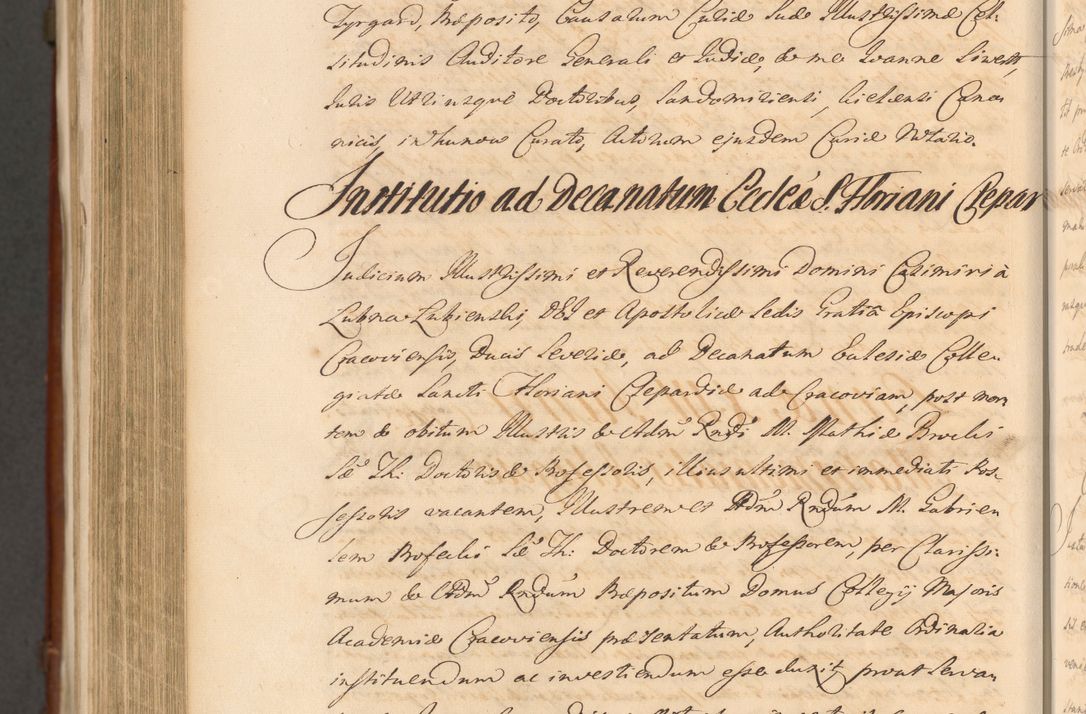 Tyrgard, Præposito, Causarum Curiæ Suæ Illustrissimæ Cel:
situdinis Auditore Generali et Judice, & me Joanne
Juris Utriusque Doctoribus, Sandomiriensi, Kielcensi Cano
nicis, in Curato, Actorum ejusdem Curiæ Notario.
Institutio ad Decanatum Eccleæ S. Floriani Clepar
Judicium Illustrissimi et Reverendissimi Domini Casimiri à
Lubna Lubienski, DEI et Apostolicæ Sedis Gratia Episcopi
Cracoviensis, Ducis Severiæ, ad Decanatum Ecclesiæ Colle
giatæ Sancti Floriani Clepardiæ ad Cracoviam, post mor
tem & obitum Illustris & Adm Rndi M. Mathiæ
Sæ Th: Doctoris & Professoris, illius ultimi et immediati Pos:
sessoris vacantem, Illustrem et Adm Rndum M. Gabrie
lem Sæ Th: Doctorem & Professorem, per Clarissi:
mum & Adm Rndum Præpositum Domus Collegij Majoris
Academiæ Cracoviensis præsentatum, Authoritate Ordinaria
instituendum ac investiendum esse duxit, prout